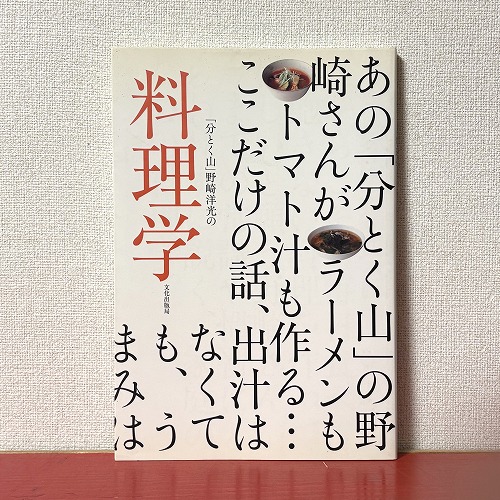 あの「分とく山」の野
崎さんがラーメンも
トマト汁も作る…
ここだけの話、出汁は
なくて
も、う
まみは
「分とく山」野崎洋光の
料理学
文化出版局